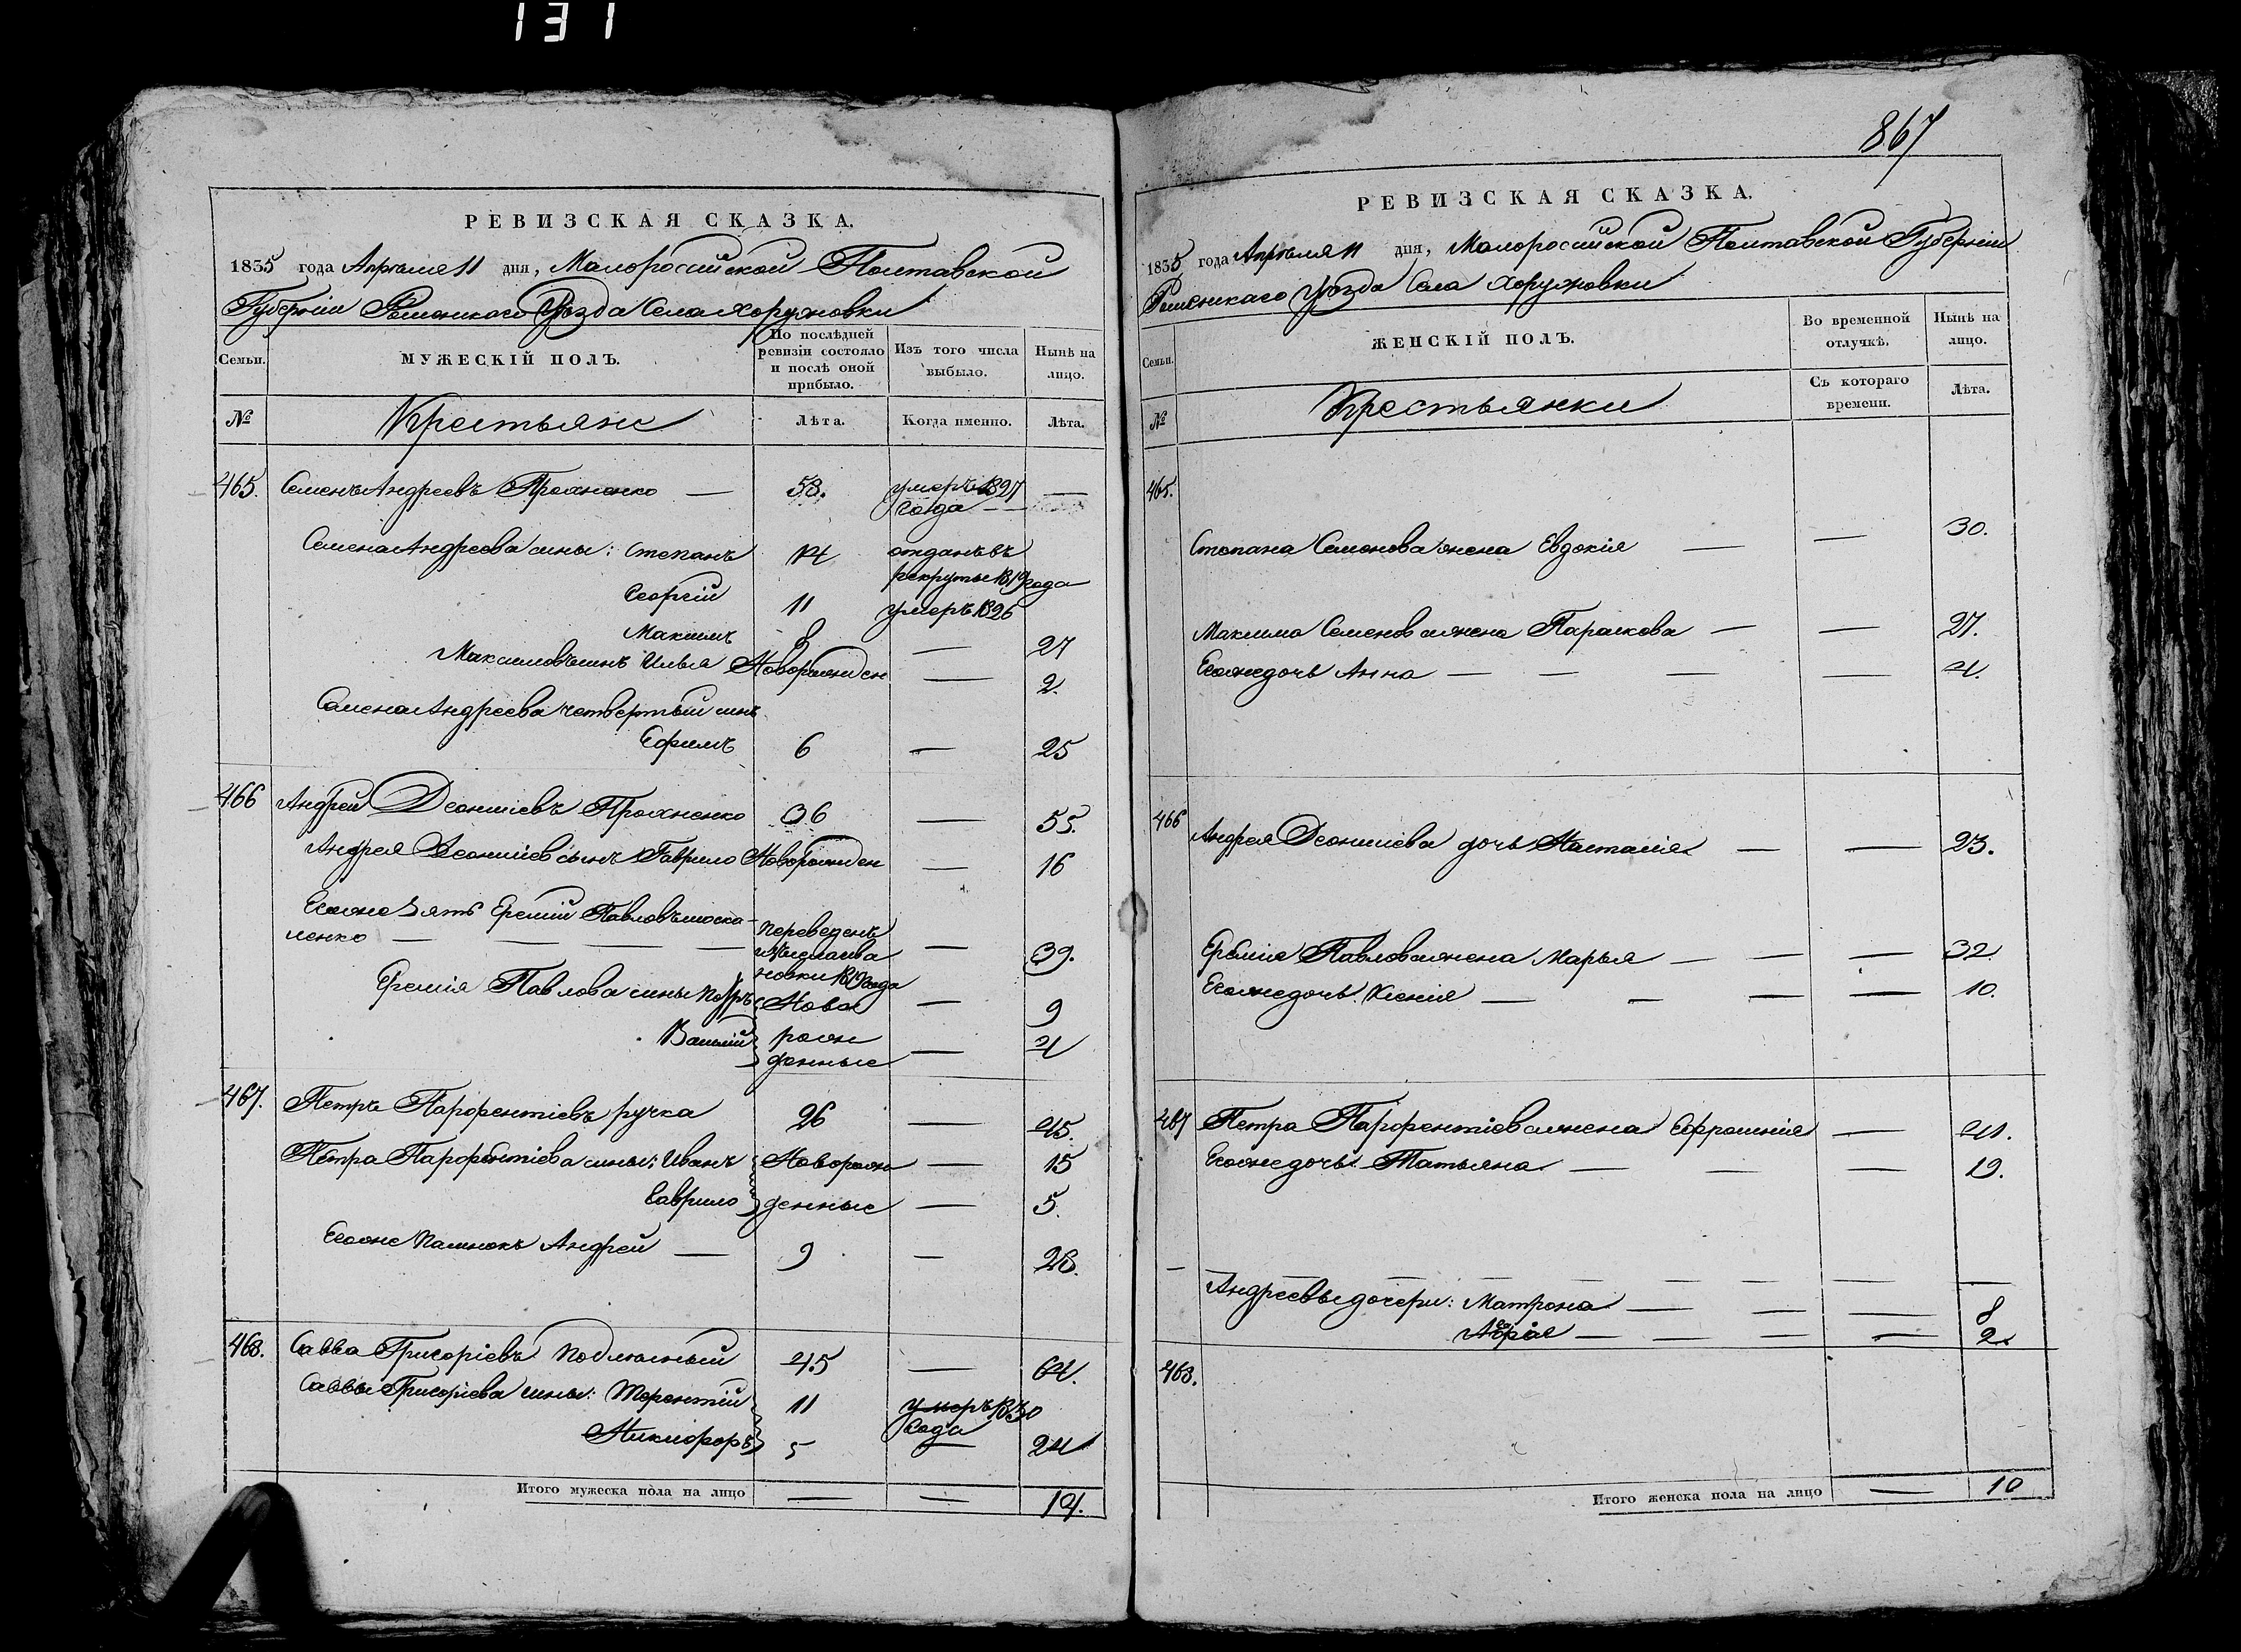 131
РЕВИЗСКАЯ СКАЗКА.
1835 года Апреля 11 дня, Малороссийской Полтавской
Губерніи Роменскаго Уѣзда Села Хоружовки
Семьи.
МУЖЕСКІЙ ПОЛЪ.
По послѣдней
ревизіи состояло
и послѣ оной
прибыло.
Изъ того числа
выбыло.
Нынѣ на
лицо.
№
Крестьяне
Лѣта.
Когда именно.
Лѣта.
465. Семенъ Андреевъ — 58. умеръ 1827 —
года — —
Семена Андреева сины: Степанъ 14 отданъ въ
рекруты 1819 года
Георгій 11 умеръ 1826
Максимъ 8 — 27
Максимовъ синъ Илья Новорожден — 2.
Семена Андреева четвертый синъ
Ефимъ 6 — 25
466 Андрей Деонисіевъ 36 — 55.
Андрея Деонисіев сынъ Гаврило Новорожден — 16
Егоже Зять Еремій Павловъ моска-
ленко — — — — переведенъ — 39.
1819 года
Еремія Павлова сины Петръ Ново — 9
Василій рож — 4
денные
467. Петръ Парфентіевъ ручка 26 — 45.
Петра Парфентіева сины: Иванъ Новорож — 15
Гаврило денные — 5.
Егоже Пасинокъ Андрей — 9 — 28.
468. Савва Григоріевъ Подлюжный 45 — 64.
Саввы Григоріева сины: Терентій 11 умеръ 1830
года
Никифоръ 5 — 24
Итого мужеска пола на лицо — — 14.
867
РЕВИЗСКАЯ СКАЗКА.
1835 года Апрѣля 11 дня, Малороссійской Полтавской Губерніи
Роменскаго Уѣзда Села Хоружовки
Семьи.
ЖЕНСКІЙ ПОЛЪ.
Во временной
отлучкѣ.
Нынѣ на
лицо.
№
Крестьянки
Съ котораго
времени.
Лѣта.
465.
Степана Семенова жена Евдокія — — 30.
Максима Семенова жена Параскева — — 27.
Егоже дочь Анна — — — — 4.
466 Андрея Деонисіева дочь Настасія — — 23.
Еремія Павлова жена Марья — — — 32
Егоже дочь Ксенія — — — — 10.
467 Петра Парфентіева жена Ефросинія — 41.
Егоже дочь Татьяна — — — 19.
— — — — — — — — — —
Андреевы дочери: Матрона — — — 8
— — — — 2.
468.
Итого женска пола на лицо — 10